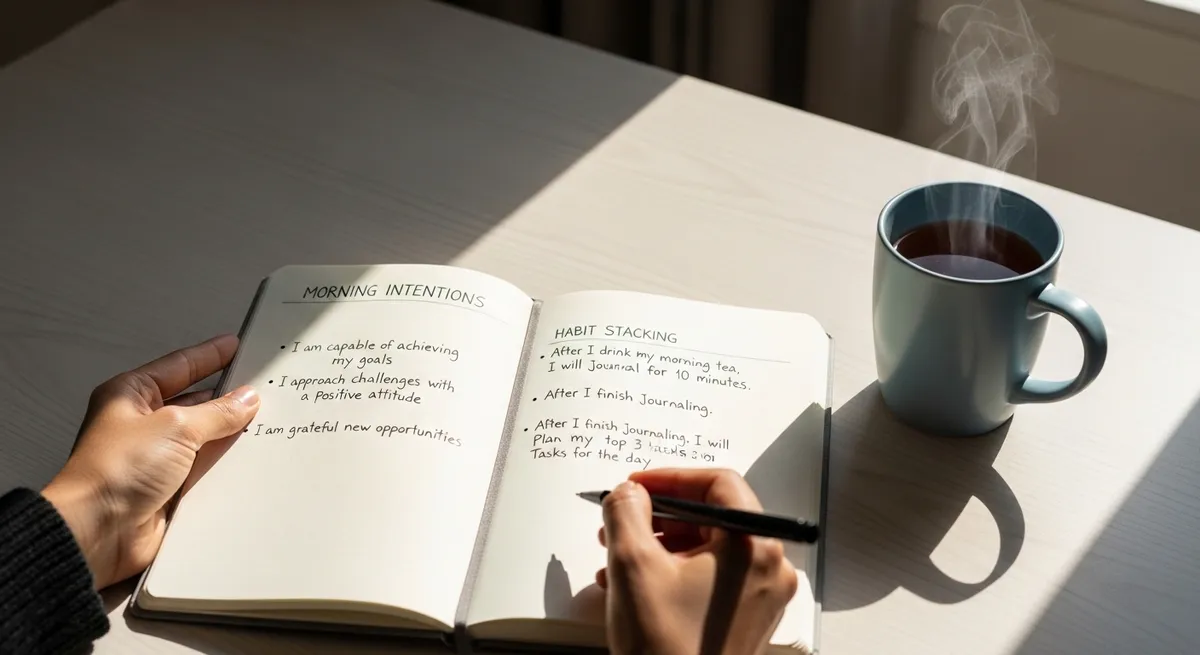 MORNING INTENTIONS
• I am capable of achieving
my goals
• I approach challenges with
a positive attitude
• I am grateful new opportunities
HABIT STACKING
• After I drink my morning tea,
I will Journal for 10 minutes.
• After I finish Journaling.
• After I finish Journaling. I will
Plan my top 3
Tasks for the day